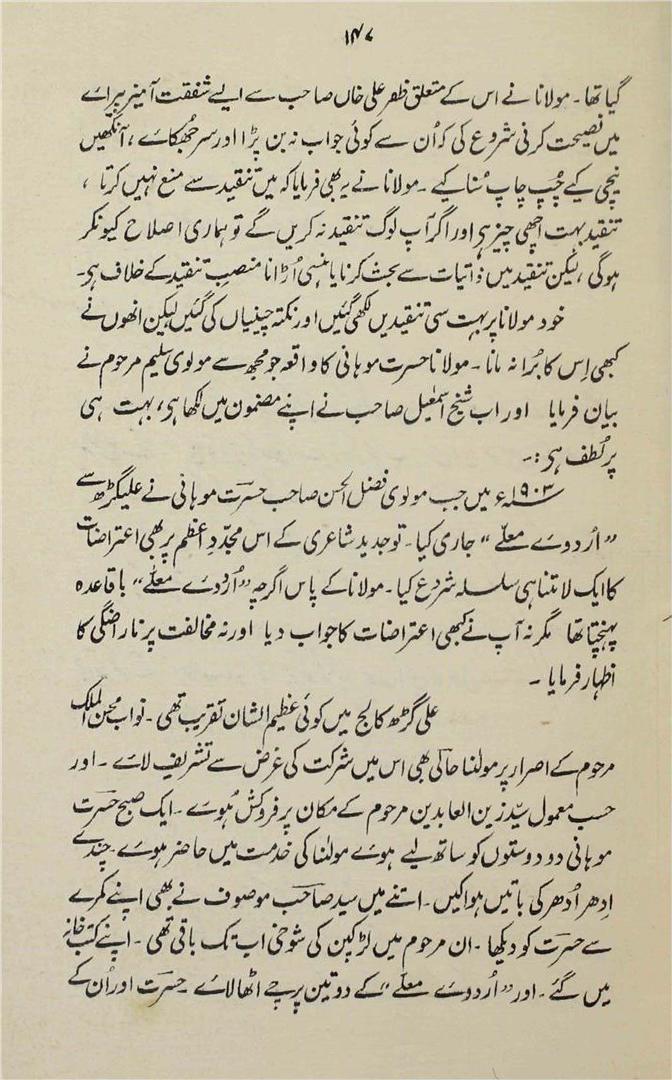 ۱۴۷
گیا تھا ۔ مولانا نے اس کے متعلق ظفر علی خاں صاحب سے ایسے شفقت آمیز پیرایے
میں نصیحت کرنی شروع کی کہ اُن سے کوئی جواب نہ بن پڑا اور سر جُھکاے ، آنکھیں
نیچی کیے چُپ چاپ سُنا کیے ۔ مولانا نے یہ بھی فرمایا کہ میں تنقید سے منع نہیں کرتا ،
تنقید بہت اچھی چیز ہی اور اگر آپ لوگ تنقید نہ کریں گے تو ہماری اصلاح کیونکر
ہوگی ، لیکن تنقید میں ذاتیات سے بحث کرنا یا ہنسی اُڑانا منصبِ تنقید کے خلاف ہی ۔
خود مولانا پر بہت سی تنقیدیں لکھی گئیں اور نکتہ چینیاں کی گئیں لیکن انھوں نے
کبھی اِس کا بُرا نہ مانا ۔ مولانا حسرت موہانی کا واقعہ جو مجھ سے مولوی سلیم مرحوم نے
بیان فرمایا اور اب شیخ اسمٰعیل صاحب نے اپنے مضمون میں لکھا ہی ، بہت ہی
پُر لُطف ہی :۔
۱۹۰۳ء میں جب مولوی فضل الحسن صاحب حسرت موہانی نے علیگڑھ سے
” اُردوے معلّے “ جاری کیا ۔ تو جدید شاعری کے اس مجدّدِ اعظم پر بھی اعتراضات
کا ایک لامتناہی سلسلہ شروع کیا ۔ مولانا کے پاس اگرچہ ” اُردوے معلّے “ باقاعدہ
پہنچتا تھا مگر نہ آپ نے کبھی اعتراضات کا جواب دیا اور نہ مخالفت پر ناراضگی کا
اظہار فرمایا ۔
علی گڑھ کالج میں کوئی عظیم الشان تقریب تھی ۔ نواب محسن الملک
مرحوم کے اصرار پر مولٰنا حالی بھی اس میں شرکت کی غرض سے تشریف لاے ۔ اور
حسب معمول سیّد زین العابدین مرحوم کے مکان پر فروکش ہُوے ۔ ایک صبح حسرت
موہانی دو دوستوں کو ساتھ لیے ہوے مولٰنا کی خدمت میں حاضر ہوے ۔ چندے
اِدھر اُدھر کی باتیں ہوا کیں ۔ اتنے میں سید صاحب موصوف نے بھی اپنے کمرے
سے حسرت کو دیکھا ۔ ان مرحوم میں لڑکپن کی شوخی اب تک باقی تھی ۔ اپنے کتب خانہ
میں گئے ۔ اور ” اُردوے معلّے “ کے دو تین پرچے اٹھا لاے ۔ حسرت اور اُن کے